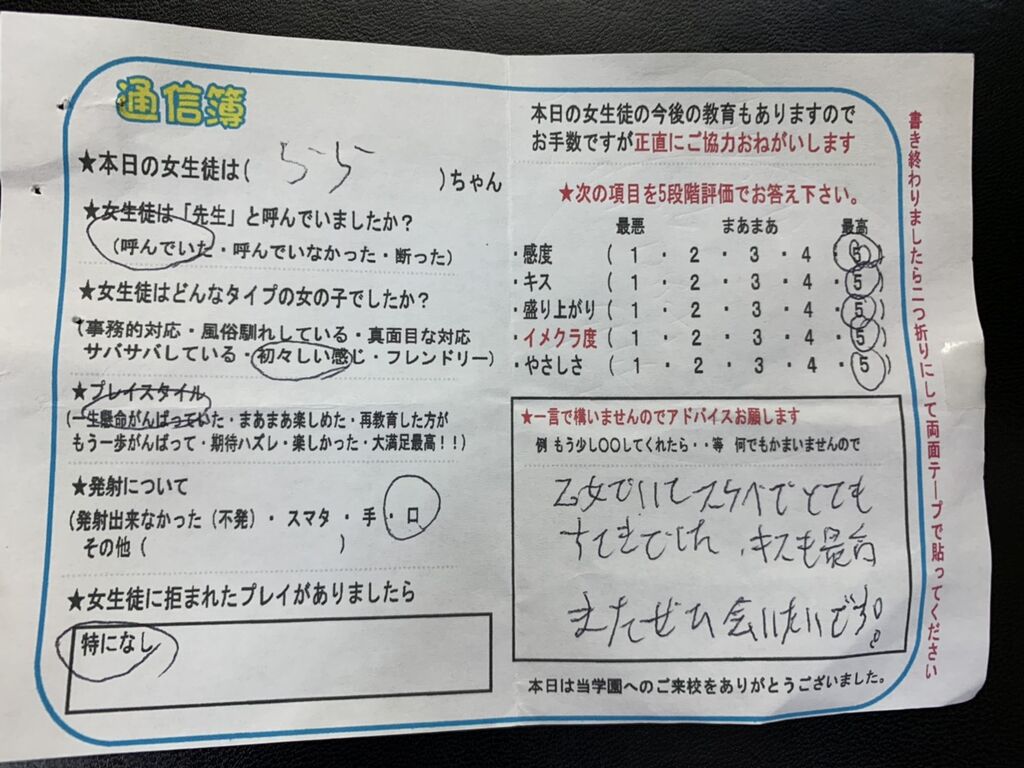 通信簿
★本日の女生徒は( らら )ちゃん
★女生徒は「先生」と呼んでいましたか?
(呼んでいた・呼んでいなかった・断った)
★女生徒はどんなタイプの女の子でしたか?
(事務的対応・風俗馴れしている・真面目な対応
サバサバしている・初々しい感じ・フレンドリー)
★プレイスタイル
(一生懸命がんばっていた・まあまあ楽しめた・再教育した方が
もう一歩がんばって・期待ハズレ・楽しかった・大満足最高!!)
★発射について
(発射出来なかった(不発)・スマタ・手・口
その他( )
★女生徒に拒まれたプレイがありましたら
特になし
本日の女生徒の今後の教育もありますので
お手数ですが正直にご協力おねがいします
★次の項目を5段階評価でお答え下さい。
最悪 まあまあ 最高
・感度 ( 1 ・ 2 ・ 3 ・ 4 ・ 5 )
・キス ( 1 ・ 2 ・ 3 ・ 4 ・ 5 )
・盛り上がり ( 1 ・ 2 ・ 3 ・ 4 ・ 5 )
・イメクラ度 ( 1 ・ 2 ・ 3 ・ 4 ・ 5 )
・やさしさ ( 1 ・ 2 ・ 3 ・ 4 ・ 5 )
★一言で構いませんのでアドバイスお願します
例 もう少し〇〇してくれたら・・等 何でもかまいませんので
乙女でいてスケベでとても
すてきでした、キスも最高
またぜひ会いたいです。
本日は当学園へのご来校をありがとうございました。
書き終わりましたら二つ折りにして両面テープで貼ってください